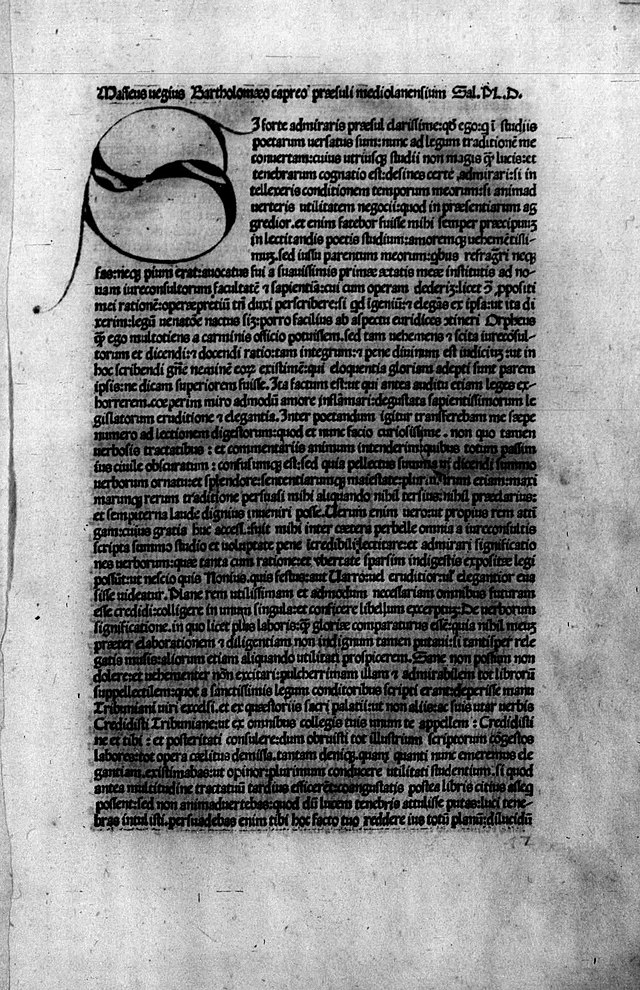 Maffeus uegius Bartholomæo capreo præsuli mediolanensium Sal. PL. D.
SI forte admiraris præsul clarissime: qđ ego: q̄ ī studiis
poetarum uersatus sum: nunc ad legum traditionē me
conuertam: cuius utriusq; studii non magis q̄ lucis: et
tenebrarum cognatio est: desines certe admirari: si in
tellexeris conditionem temporum meorum: si animad
uerteris utilitatem negocii: quod in præsentiarum ag
gredior. et enim fatebor fuisse mihi semper præcipuuȝ
in lectitandis poetis studium: amoremq; uehemētissi-
muȝ. sed iussu parentum meorum: qbus refragri necq;
fas: necq; pium erat: auocatus fui a suauissimis primæ ætatis meæ institutis ad no-
uam iureconsultorum facultatē ⁊ sapientiā: cui cum operam dederiȝ: licet ppositi
mei rationē: operæpretiū tn̄ duxi perscribere: si qđ igeniū: ⁊ elegās ex ipsa: ut ita di
xerim: legū uenatōe nactus siȝ: porro facilius ab aspectu euridices ɔtineri Orpheus
q̄ ego multotiens a carminis officio potuissem. sed tam uehemens ⁊ scita iurecōsul-
torum et dicendi: ⁊ docendi ratio: tam integrum: ⁊ pene diuinum est iudiciuȝ: ut in
hoc scribendi gn̄e neminē eoȝ existimē: qui eloquentia gloriam adepti sunt parem
ipsis: ne dicam superiorem fuisse. Ita factum est: ut qui antea auditu etiam leges ex-
horrerem. cœperim miro admodū amore inflāmari: degustata sapientissimorum le
gislatorum eruditione ⁊ elegantia. Inter poetandum igitur transferebam me sæpe
numero ad lectionem digestorum: quod et nunc facio curiosissime. non quo tamen
uerbosis tractatibus: et commentariis animum intenderim: quibus totum passim
ius ciuile obscuratum: confusumq; est: sed quia pellectus summa ui dicendi summo
uerborum ornatu: et splendore: sententiarumq; maiestate: plurimarum etiam: maxi
marumq; rerum traditione persuasi mihi aliquando nihil tersius: nihil præclarius:
et sempiterna laude dignius inueniri posse. Uerum enim uero: ut propius rem atti
gam: cuius gratia huc accessi. fuit mihi inter cætera perbelle omnia a iureconsultis
scripta summo studio et uoluptate pene īcredibili: lectitare: et admirari significatio
nes uerborum: quæ tanta cum ratione: et ubertate sparsim indigestis expositæ legi
possūt: ut nescio quis Nonius. quis festus: aut Uarro: uel eruditior uel elegantior eua
sisse uideatur. Plane rem utilissimam et admodum necessariam omnibus futuram
esse credidi: colligere in unum singula: et conficere libellum excerptuȝ: De uerborum
significatione. in quo licet plus laboris: q̄ gloriæ comparaturus essē: quia nihil meuȝ
præter elaborationem ⁊ diligentiam non indignum tamen putaui: si tantisper rele
gatis musis: aliorum etiam aliquando utilitati prospicerem. Sane non possum non
dolere: et uehementer nōn excitari: pulcherrimam illam ⁊ admirabilem tot librorū
suppellectilem: quot a sanctissimis legum conditoribus scripti erant: deperisse manu
Tribuniani uiri excelsi. et ex quæstoriis sacri palatii: ut non aliis: ac suis utar uerbis
Credidisti Tribuniane: ut ex omnibus collegis tuis unum te appellem: Credidisti
ne et tibi: et posteritati consulere: dum obruisti tot illustrium scriptorum cōgestos
labores: tot opera cœlitus demissa. tantam deniq; quanȝ quanti nunc emeremus ele
gantiam. existimabas: ut opinor: plurimum conducere utilitati studentium. si quod
antea multitudine tractatuū tardius efficerēt: coangustatis postea libris citius asseq
possent: sed non animaduertebas: quod dū lucem tenebris attulisse putas: luci tene-
bras intulisti. persuadebas enim tibi hoc facto tuo reddere ius totū planū: dilucidū